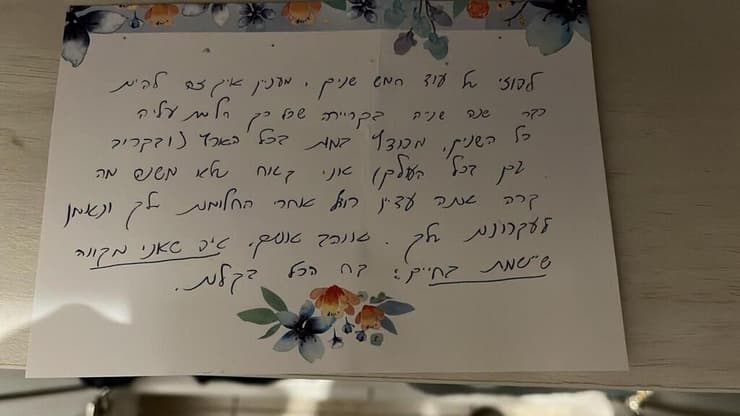 לפוזי של עוד חמש שנים, מעניין איך זה להיות
כבר שנה שניה בקריירה שכל כך חלמת עליה
כל השנים, מכוכב במות בכל הארץ (ובקרוב
גם בכל העולם) אני בטוח שלא משנה מה
קרה אתה עדיין רודף אחרי החלומות שלך ונאמן
לעקרונות שלך. אוהב אותך, איפ שאני מקווה
שישמת בחיים: קח הכל בקלות.